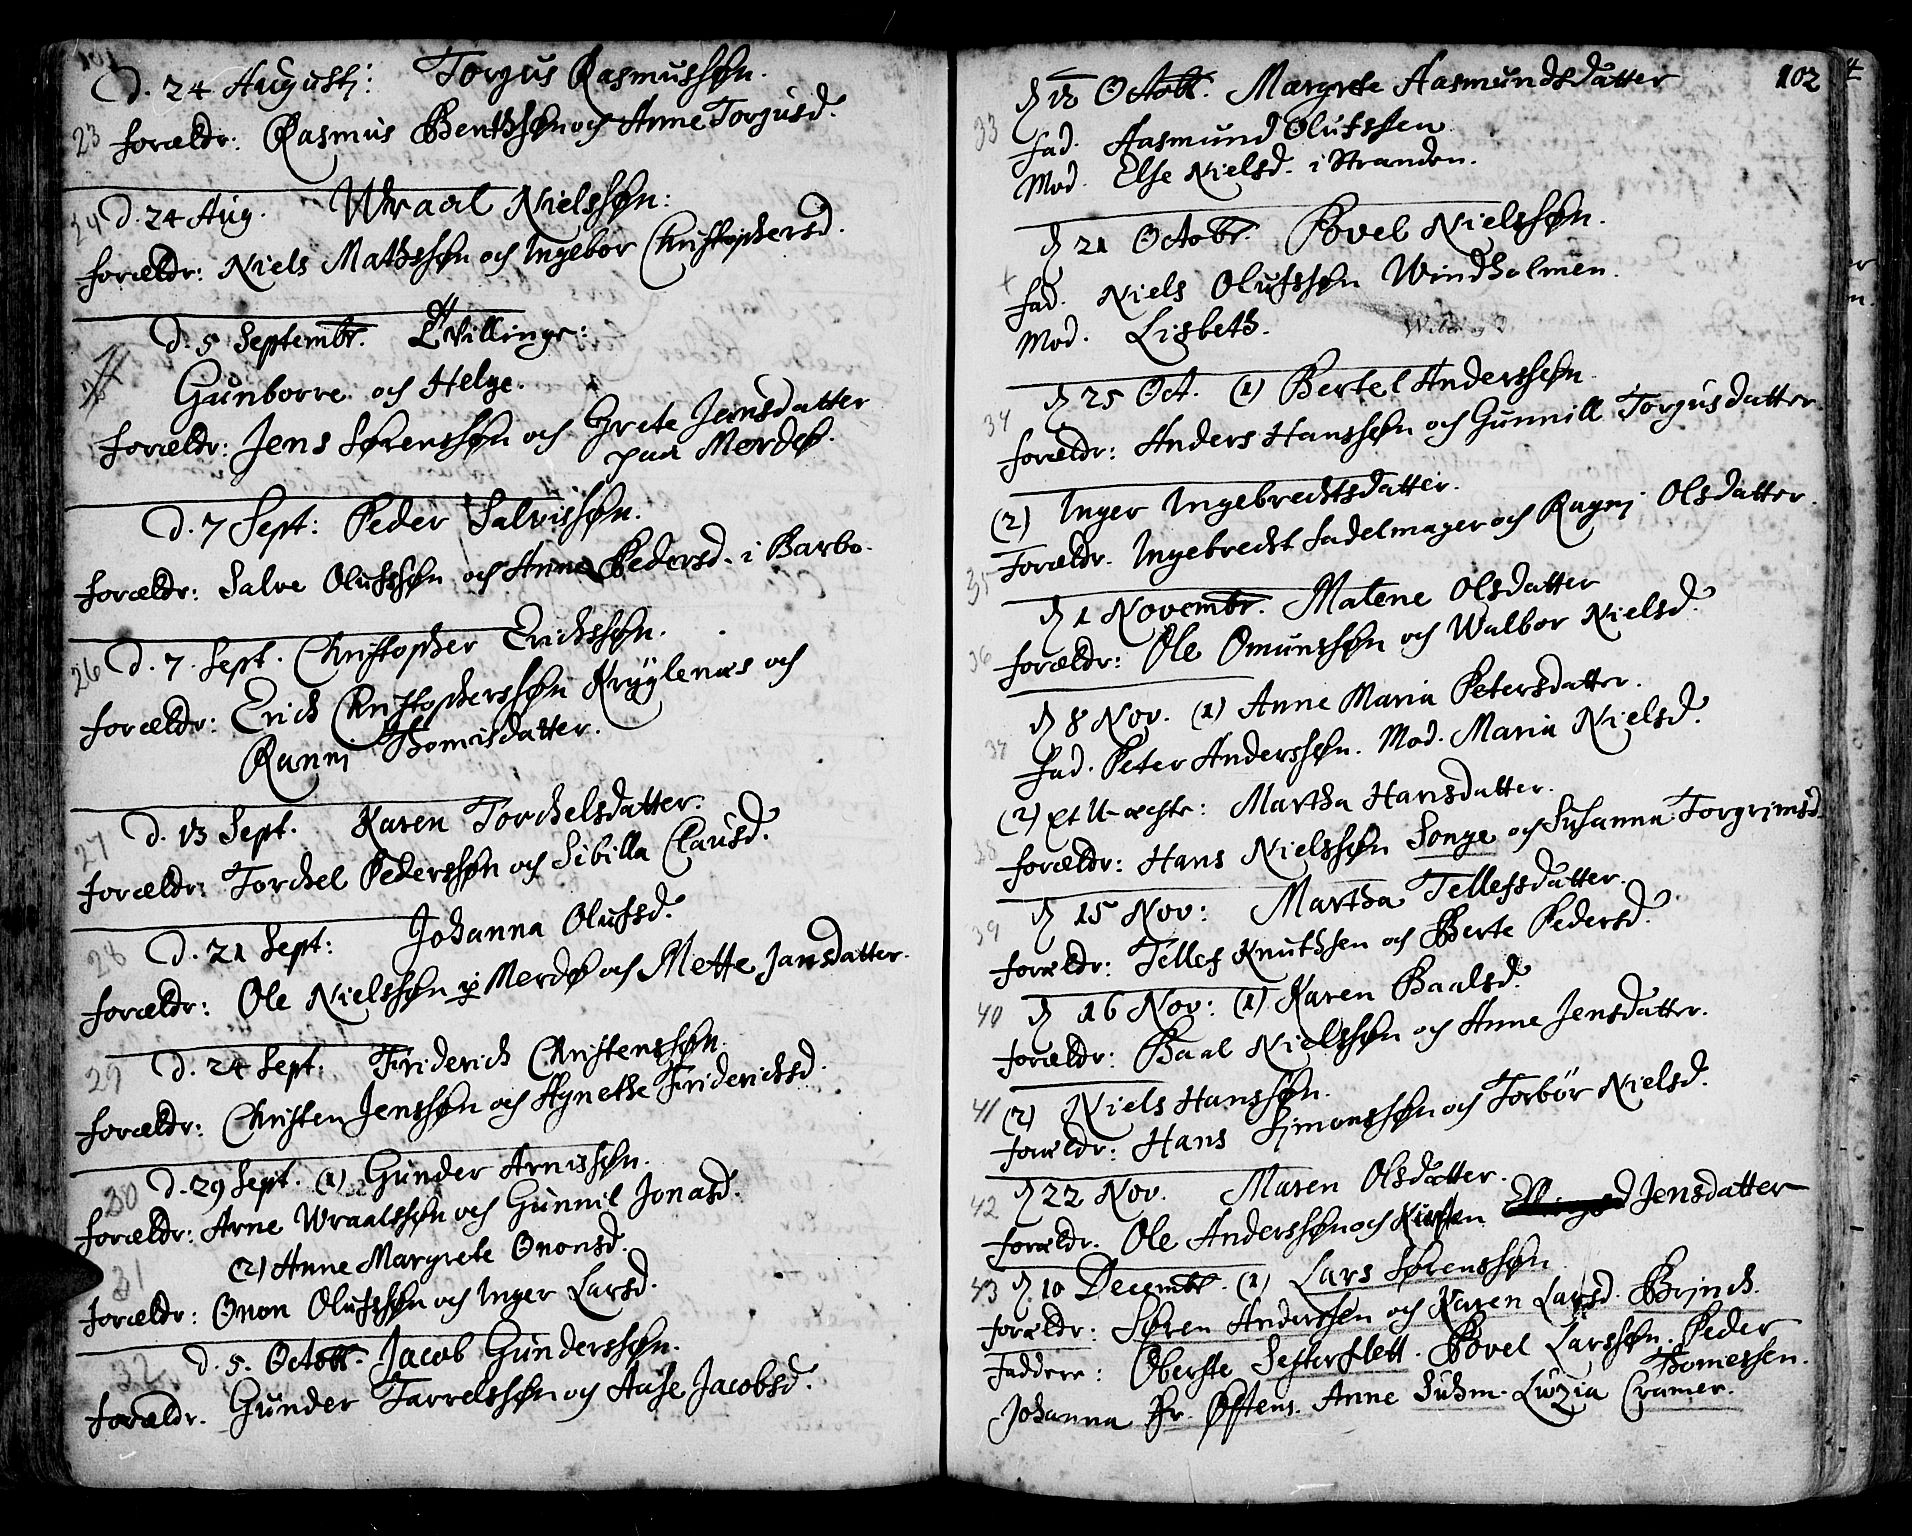 101
D. 24 Augustj: Torgus Rasmussøn.
23 forældr: Rasmus Benthsøn och Anne Torgusd.
24 D. 24 Aug. Wraal Nielssøn:
forældr: Niels Mathssøn och Ingebor Christophersd.
D. 5 Septembr. Tvillinge:
Gunborre och Helge.
forældr: Jens Sørenssøn och Grete Jensdatter
paa Merdø.
D. 7 Sept: Peder Salvissøn.
forældr: Salve Olufssøn och Anne Pedersd. i Barbo.
26 D. 7. Sept. Christopher Erichssøn.
forældr: Erich Christopherssøn Krÿglenæs och
Rannj Thomisdatter.
27 D. 13 Sept. Karen Torchelsdatter.
forældr: Torchel Pederssøn och Sibilla Clausd.
28 D. 21 Sept: Johanna Olufsd.
forældr: Ole Nielssøn p Merdø och Mette Jansdatter.
29 D. 24 Sept: Friderich Christenssøn.
forældr: Christen Jenssøn och Agnethe Friderichsd.
30 D. 29 Sept. (1) Gunder Arnissøn.
forældr: Arne Wraalssøn och Gunnil Jonasd.
31 (2) Anne Margrete Ononsd.
forældr: Onon Olufssøn och Inger Larsd.
32 D. 5. Octobr. Jacob Gunderssøn.
forældr. Gunder Tarrelssøn och Aase Jacobsd.
102
33 D 12 Octobr. Margrete Aasmundsdatter
fad. Aasmund Olufssen
Mod. Else Nielsd. i Stranden.
D 21 Octobr. Povel Nielssøn.
fad. Niels Olufssøn Windholmen.
Mod. Lisbeth.
34 D 25 Oct. (1) Bertel Anderssøn.
forældr: Anders Hanssøn och Gunnill Torgusdatter.
(2) Inger Ingebrechtsdatter.
35 Forældr. Ingebrecht Sadelmager och Ragnj Olsdatter.
D 1 Novembr. Malene Olsdatter
36 forældr: Ole Omunssøn och Walbor Nielsd.
37 D 8 Nov. (1) Anne Maria Petersdatter.
Fad. Peter Anderssøn. Mod. Maria Nielsd.
(2) et U-æchte: Martha Hansdatter.
38 forældr: Hans Nielssøn Songe och Susanna Torgrimsd.
39 D 15 Nov: Martha Tellefsdatter.
forældr: Tellef Knuthsen och Berte Pedersd.
40 D 16 Nov: (1) Karen Baalsd.
forældr: Baal Nielssøn och Anne Jensdatter.
41 (2) Niels Hanssøn.
forældr: Hans Simonssøn och Torbör Nielsd.
42 D 22 Nov. Maren Olsdatter.
forældr. Ole Anderssøn och Kirsten Jensdatter
43 D 10 Decembr. (1) Lars Sørenssøn
forældr: Søren Anderssen och Karen Larsd. Brinch.
Faddere: Oberste Sesterflett. Povel Larssøn. Peder
Thomessen.
Johanna Hr. Østens. Anne Suhm. Luzia Cramer.